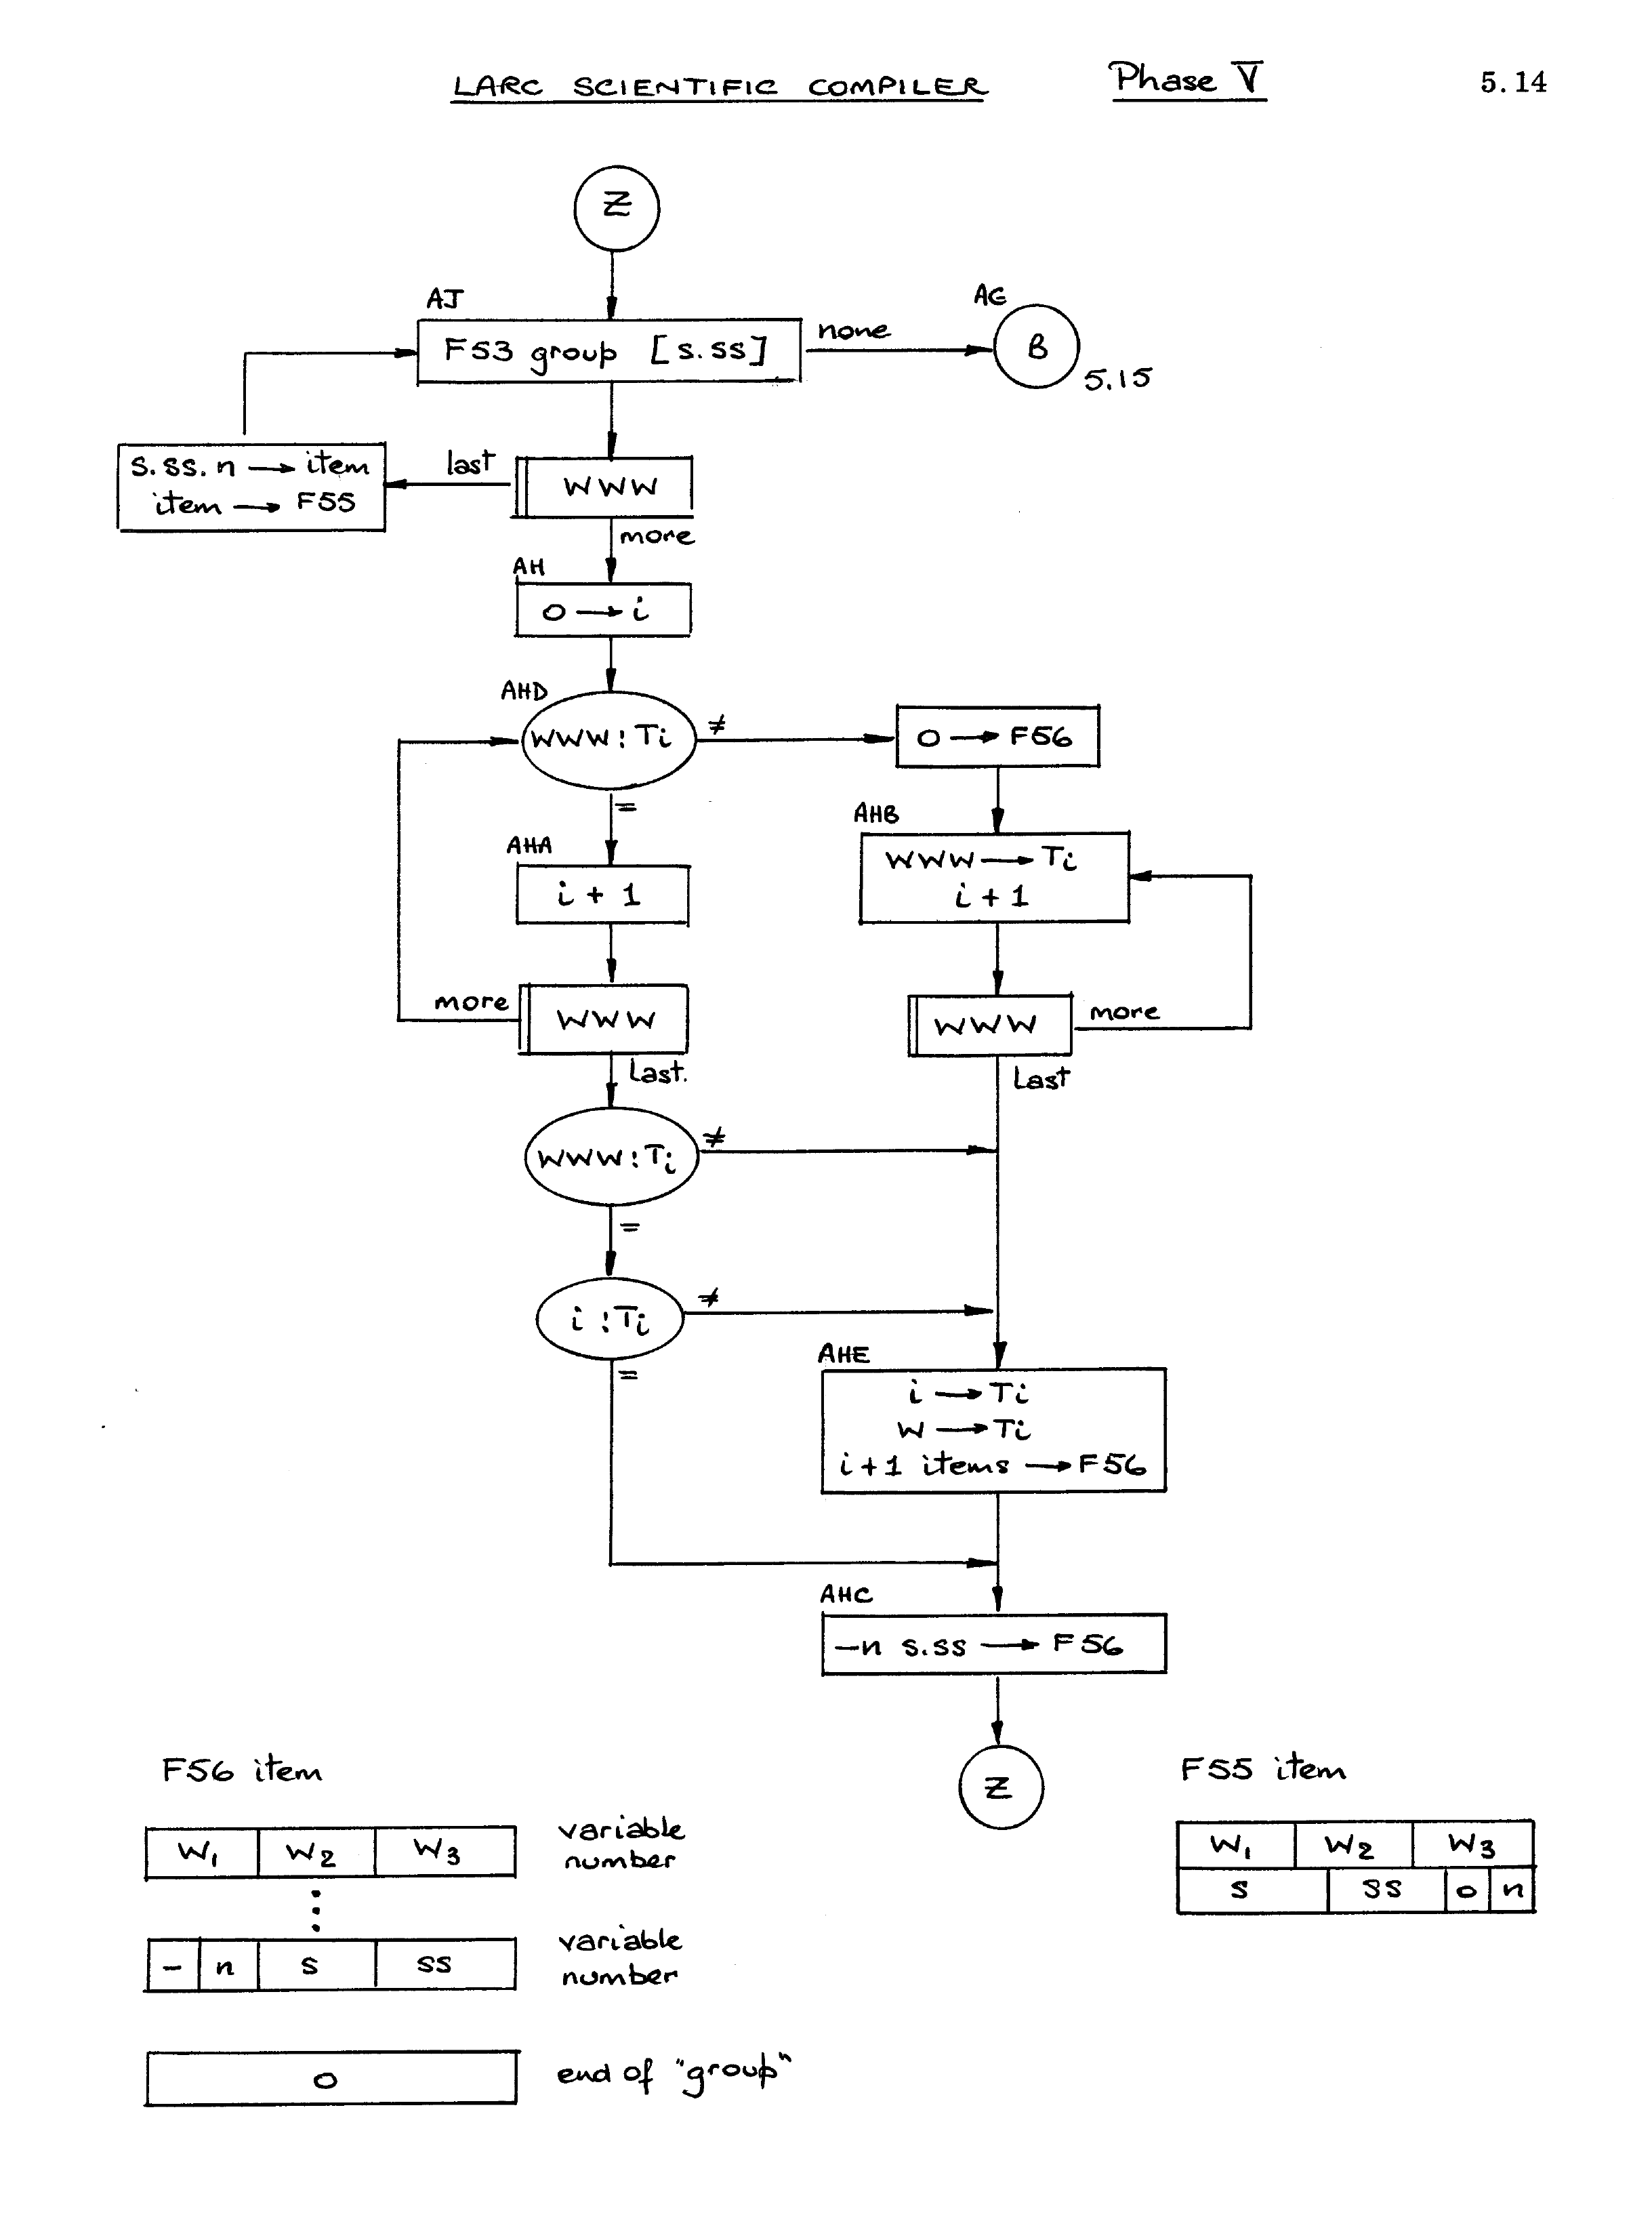 LARC SCIENTIFIC COMPILER Phase V 5.14
Z
AJ
F53 group [s.ss]
none
AG
B
5.15
s.ss.n → item
item → F55
last
WWW
more
AH
0 → i
AHD
WWW : Ti
≠
0 → F56
=
AHB
WWW → Ti
i + 1
AHA
i + 1
more
WWW
WWW
more
Last.
Last
WWW : Ti
≠
=
i : Ti
≠
=
AHE
i → Ti
W → Ti
i+1 items → F56
AHC
-n s.ss → F56
Z
F56 item
W1 W2 W3
variable
number
⋮
- n s ss
variable
number
0
end of "group"
F55 item
W1 W2 W3
s ss 0 n